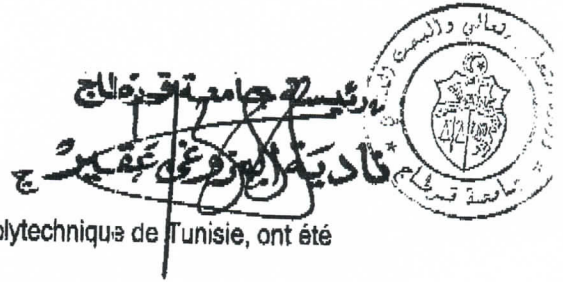 رئيسة جامعة قرطاج
نادية المزوغي عقير
جامعة قرطاج
olytechnique de Tunisie, ont été